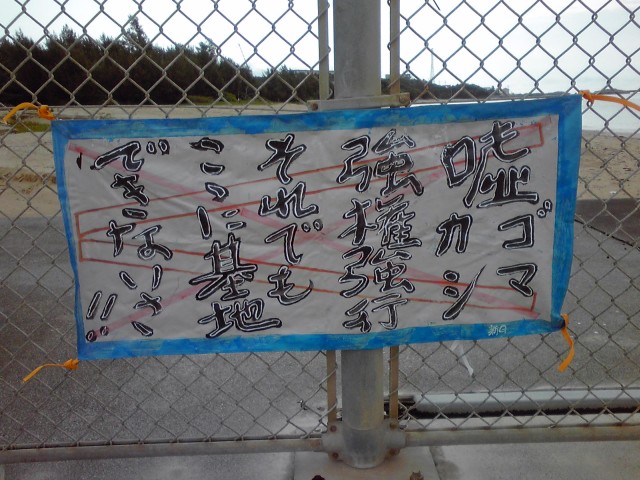 嘘ゴマカシ
強権強行
それでも
ここに基地
できないさ!!